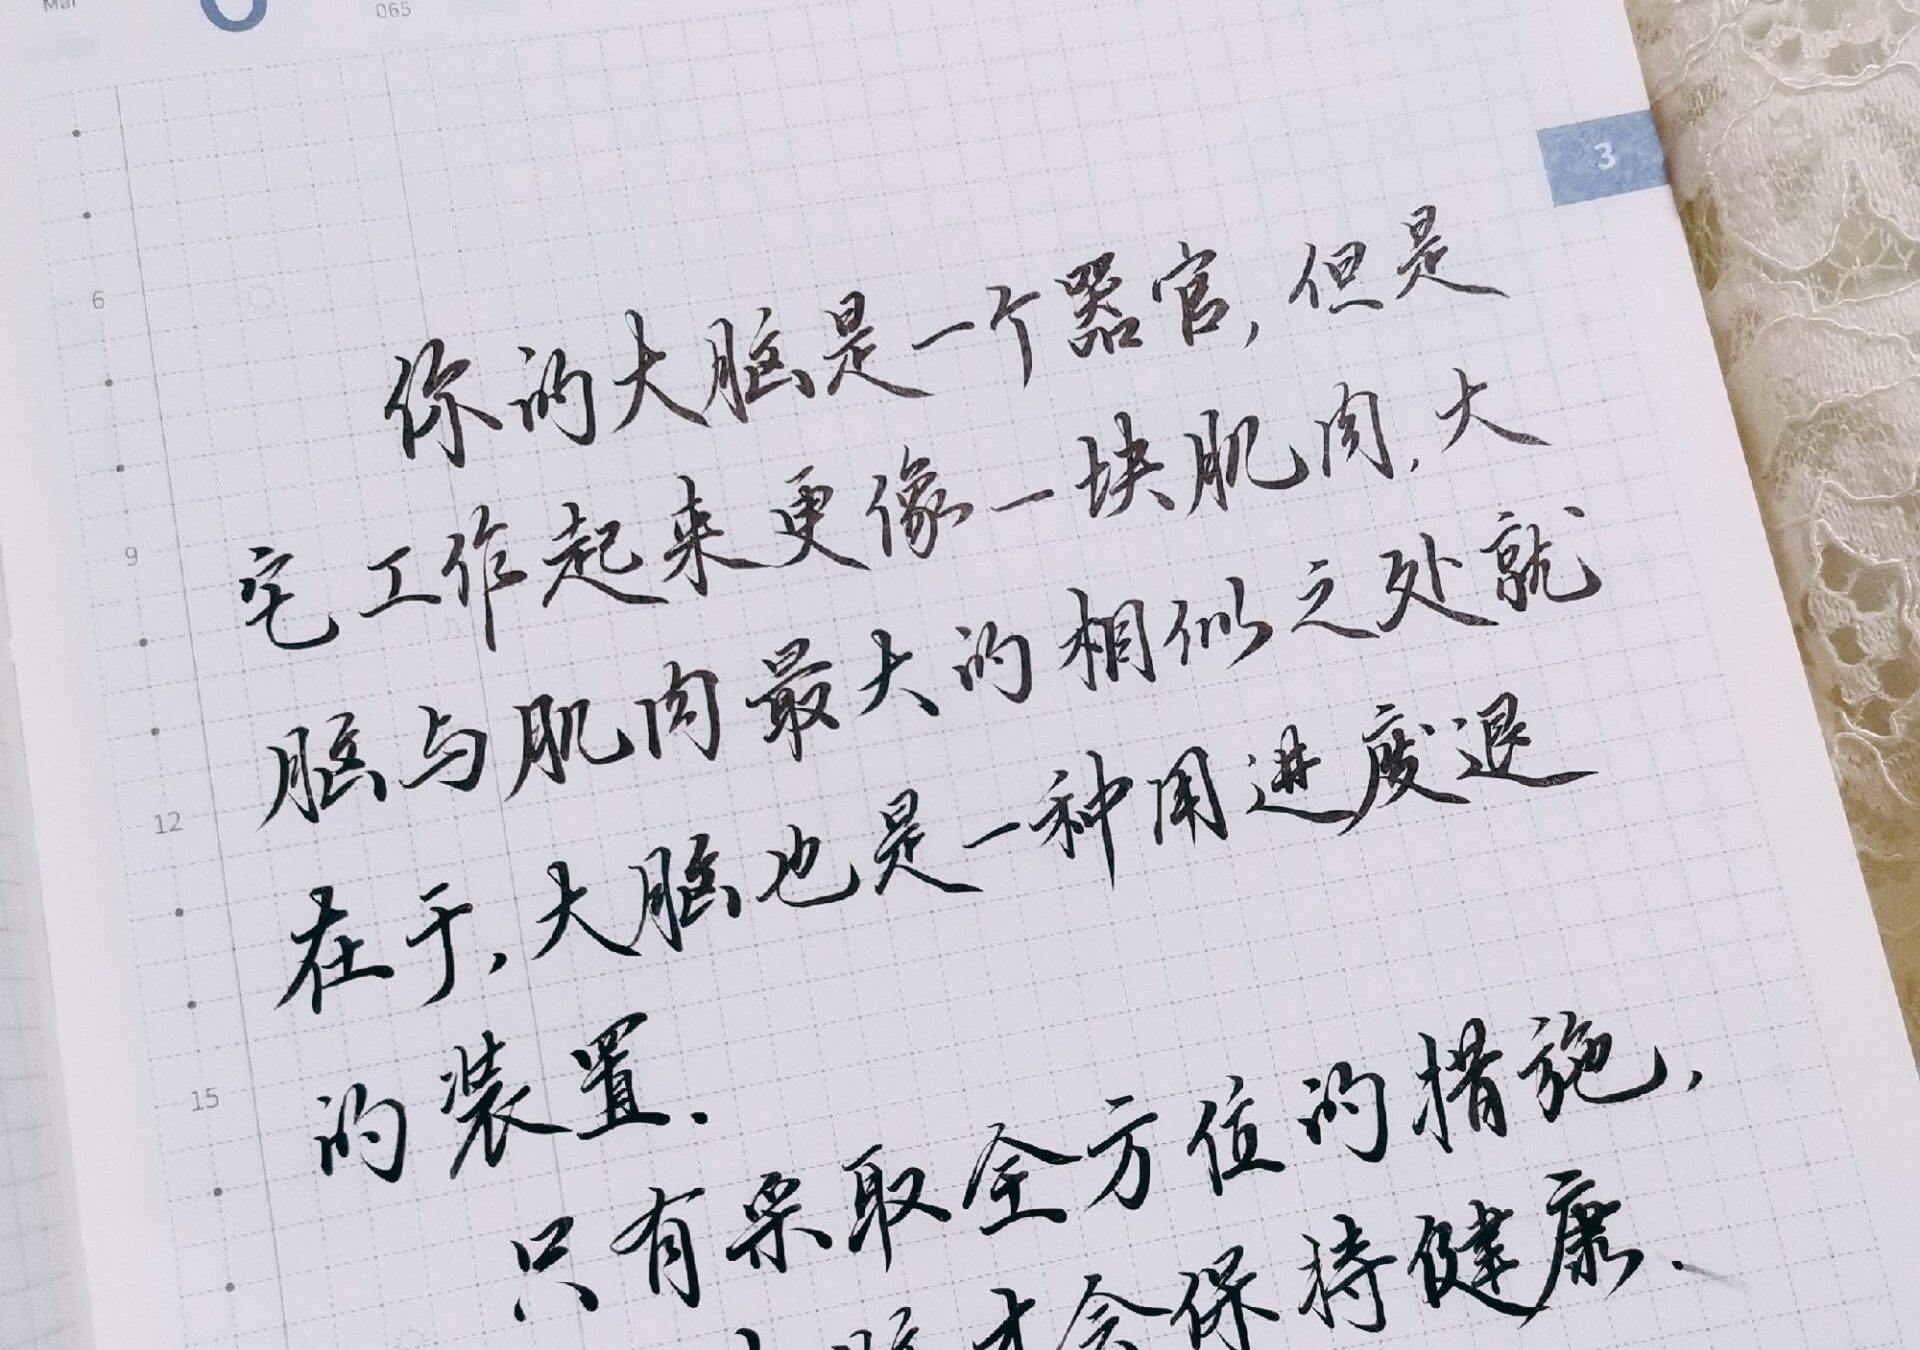 065
3
6
你的大脑是一个器官,但是
它工作起来更像一块肌肉.大
9
脑与肌肉最大的相似之处就
12
在于,大脑也是一种用进废退
的装置.
15
只有采取全方位的措施,
大脑才会保持健康.